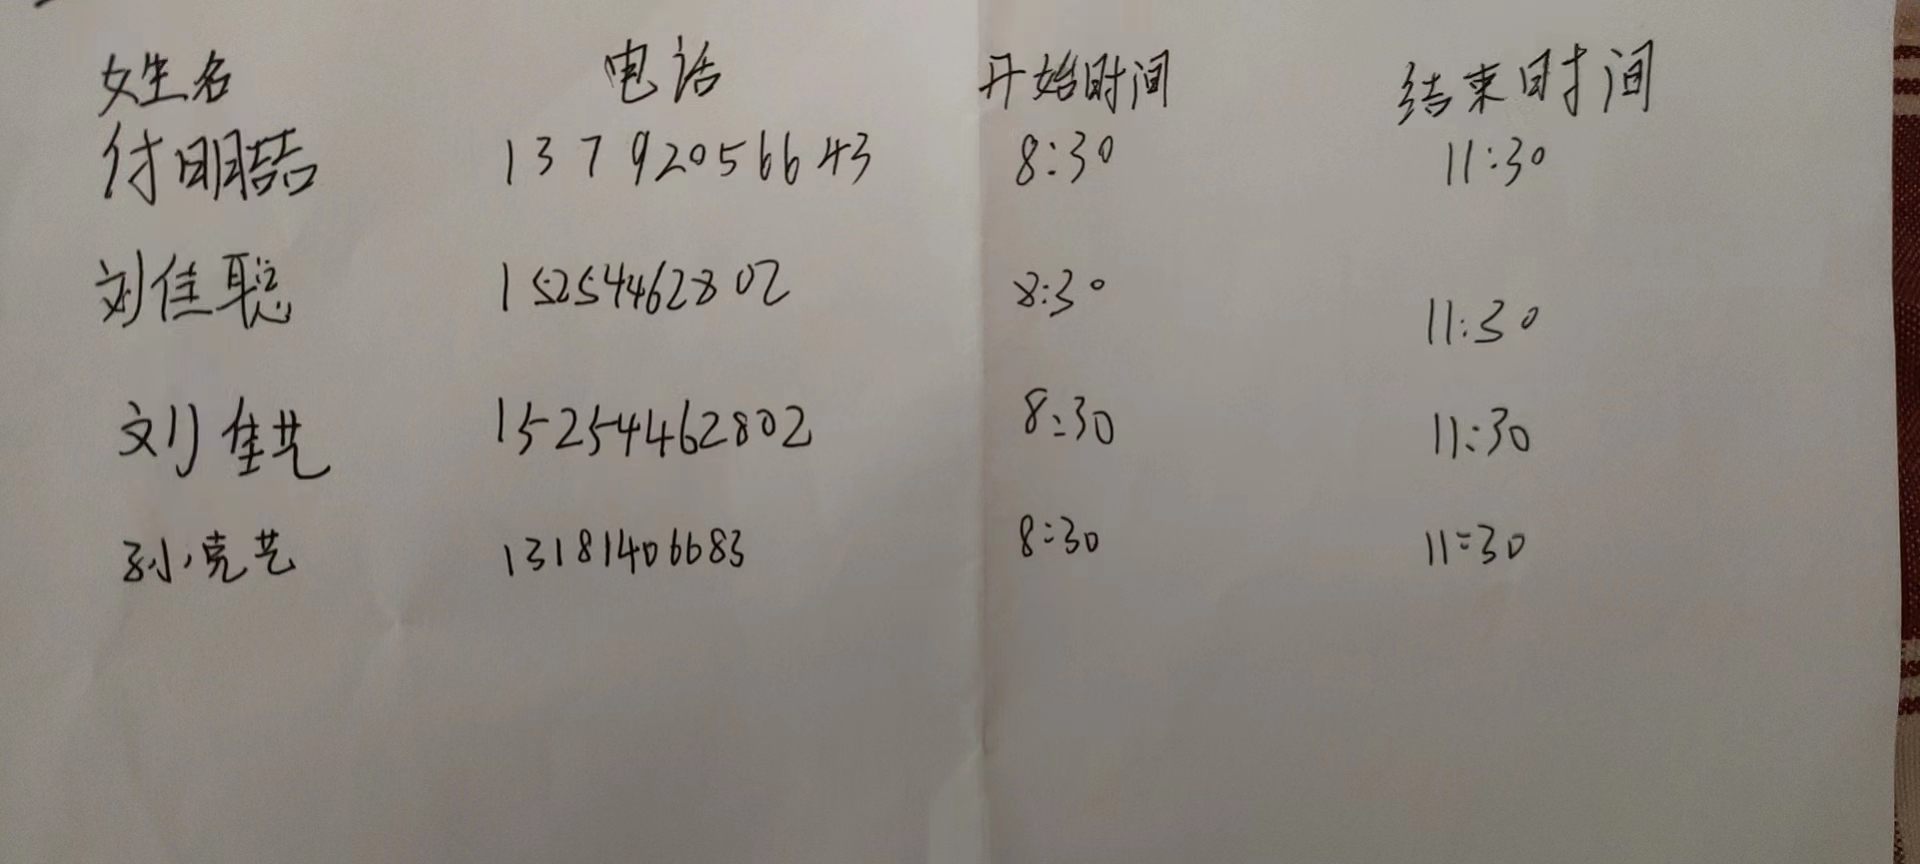 姓名 电话 开始时间 结束时间
付明喆 13792056643 8:30 11:30
刘佳聪 15254462802 8:30 11:30
刘佳艺 15254462802 8:30 11:30
孙克艺 13181406683 8:30 11:30